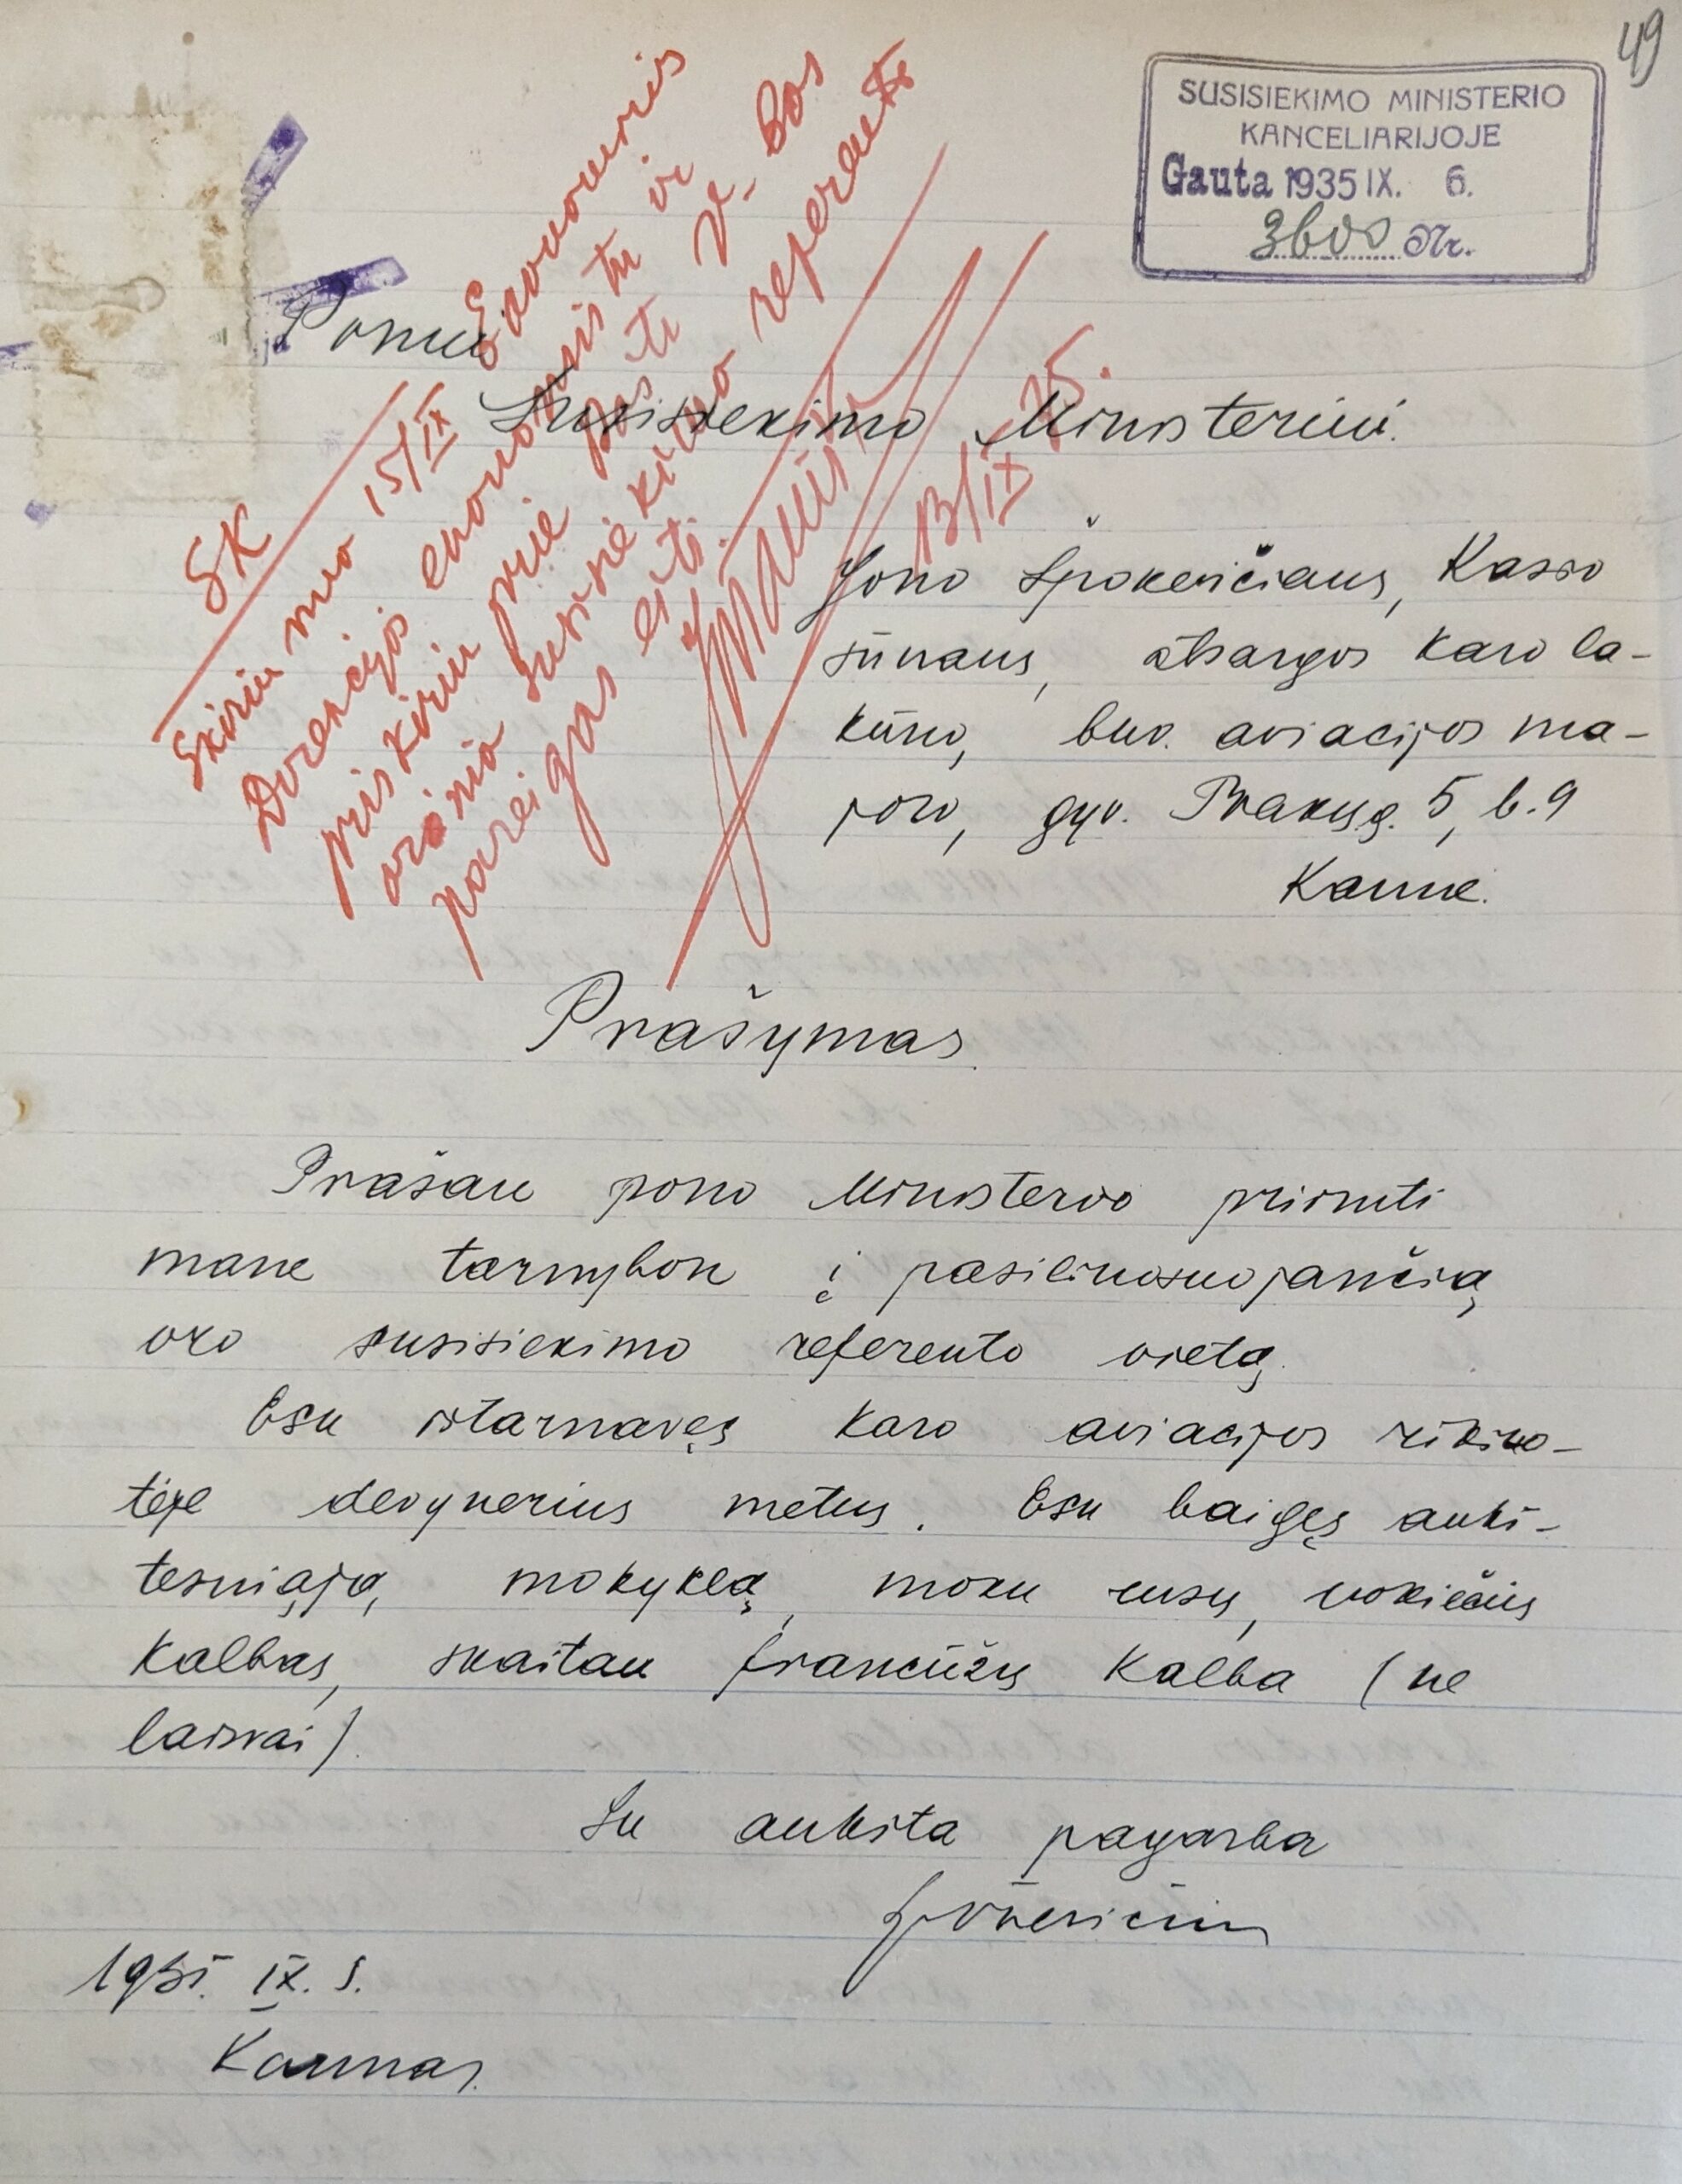 49
SUSISIEKIMO MINISTERIO
KANCELIARIJOJE
Gauta 1935 IX. 6.
3600 Nr.
Ponui
Susisiekimo Ministeriui.
SK
Skiriu nuo 15/IX Ekonominės
Direkcijos ekonomistu ir
priskiriu prie pašto V-bos
orinio susisiekimo referento
pareigas eiti.
13/IX 35.
Jono Špokevičiaus, Kazio
sūnaus, atsargos karo la-
kūno, buv. aviacijos ma-
joro, gyv. Trakų g. 5, b. 9
Kaune.
Prašymas.
Prašau pono Ministerio priimti
mane tarnybon į pasiliuosuojančią
oro susisiekimo referento vietą.
Esu ištarnavęs karo aviacijos rikiuo-
tėje devynerius metus. Esu baigęs aukš-
tesniąją mokyklą, moku rusų, vokiečių
kalbas, skaitau francūzų kalba (ne
laisvai).
Su aukšta pagarba
Špokevičius
1935. IX. 5.
Kaunas.